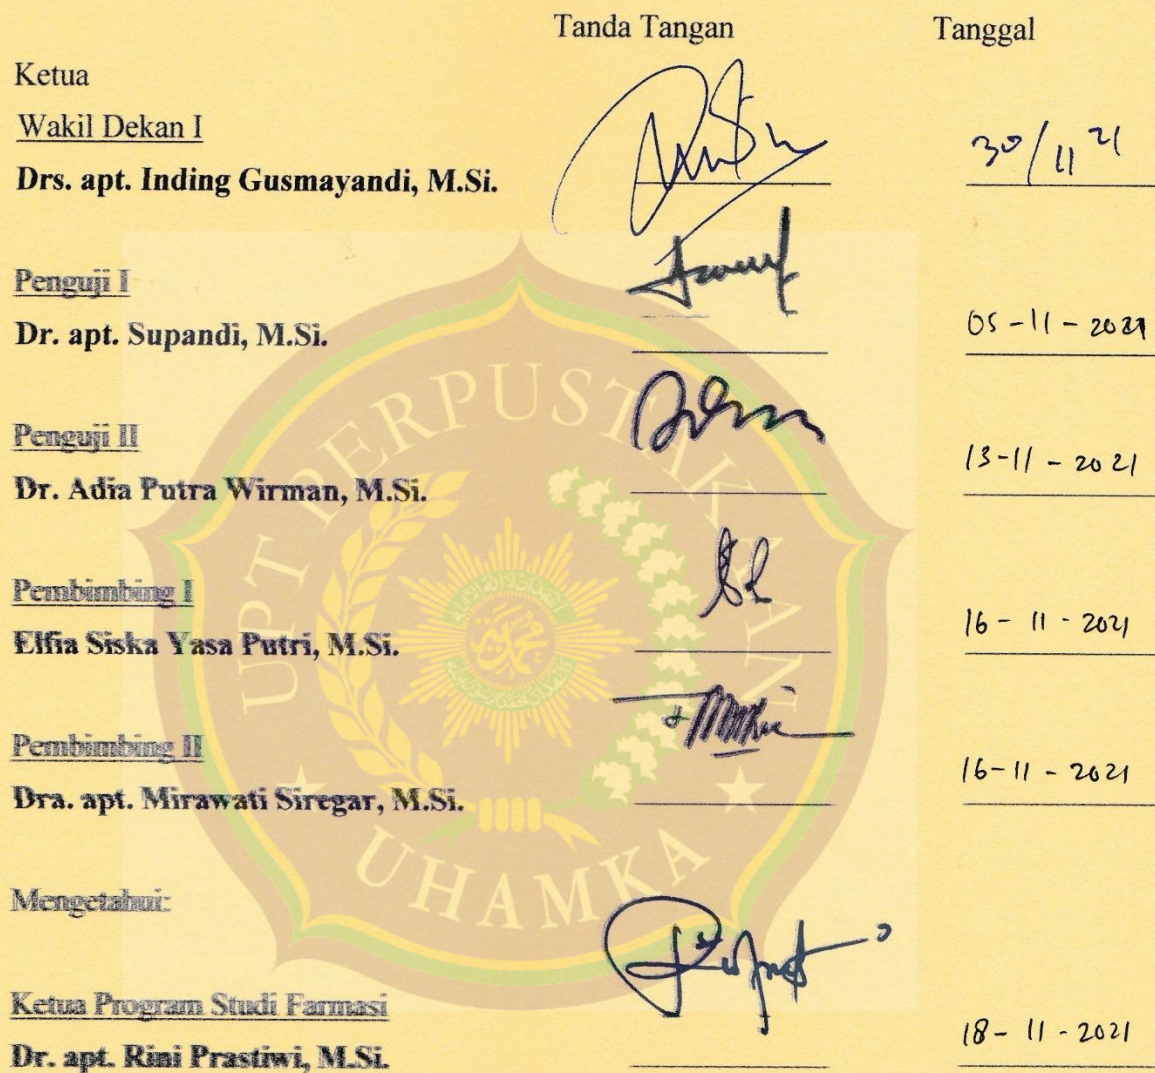 Tanda Tangan Tanggal
Ketua
Wakil Dekan I
Drs. apt. Inding Gusmayandi, M.Si. 30/11 21
Penguji I
Dr. apt. Supandi, M.Si. 05-11-2021
Penguji II
Dr. Adia Putra Wirman, M.Si. 13-11-2021
Pembimbing I
Elfia Siska Yasa Putri, M.Si. 16-11-2021
Pembimbing II
Dra. apt. Mirawati Siregar, M.Si. 16-11-2021
Mengetahui:
Ketua Program Studi Farmasi
Dr. apt. Rini Prastiwi, M.Si. 18-11-2021
UPT PERPUSTAKAAN
UHAMKA